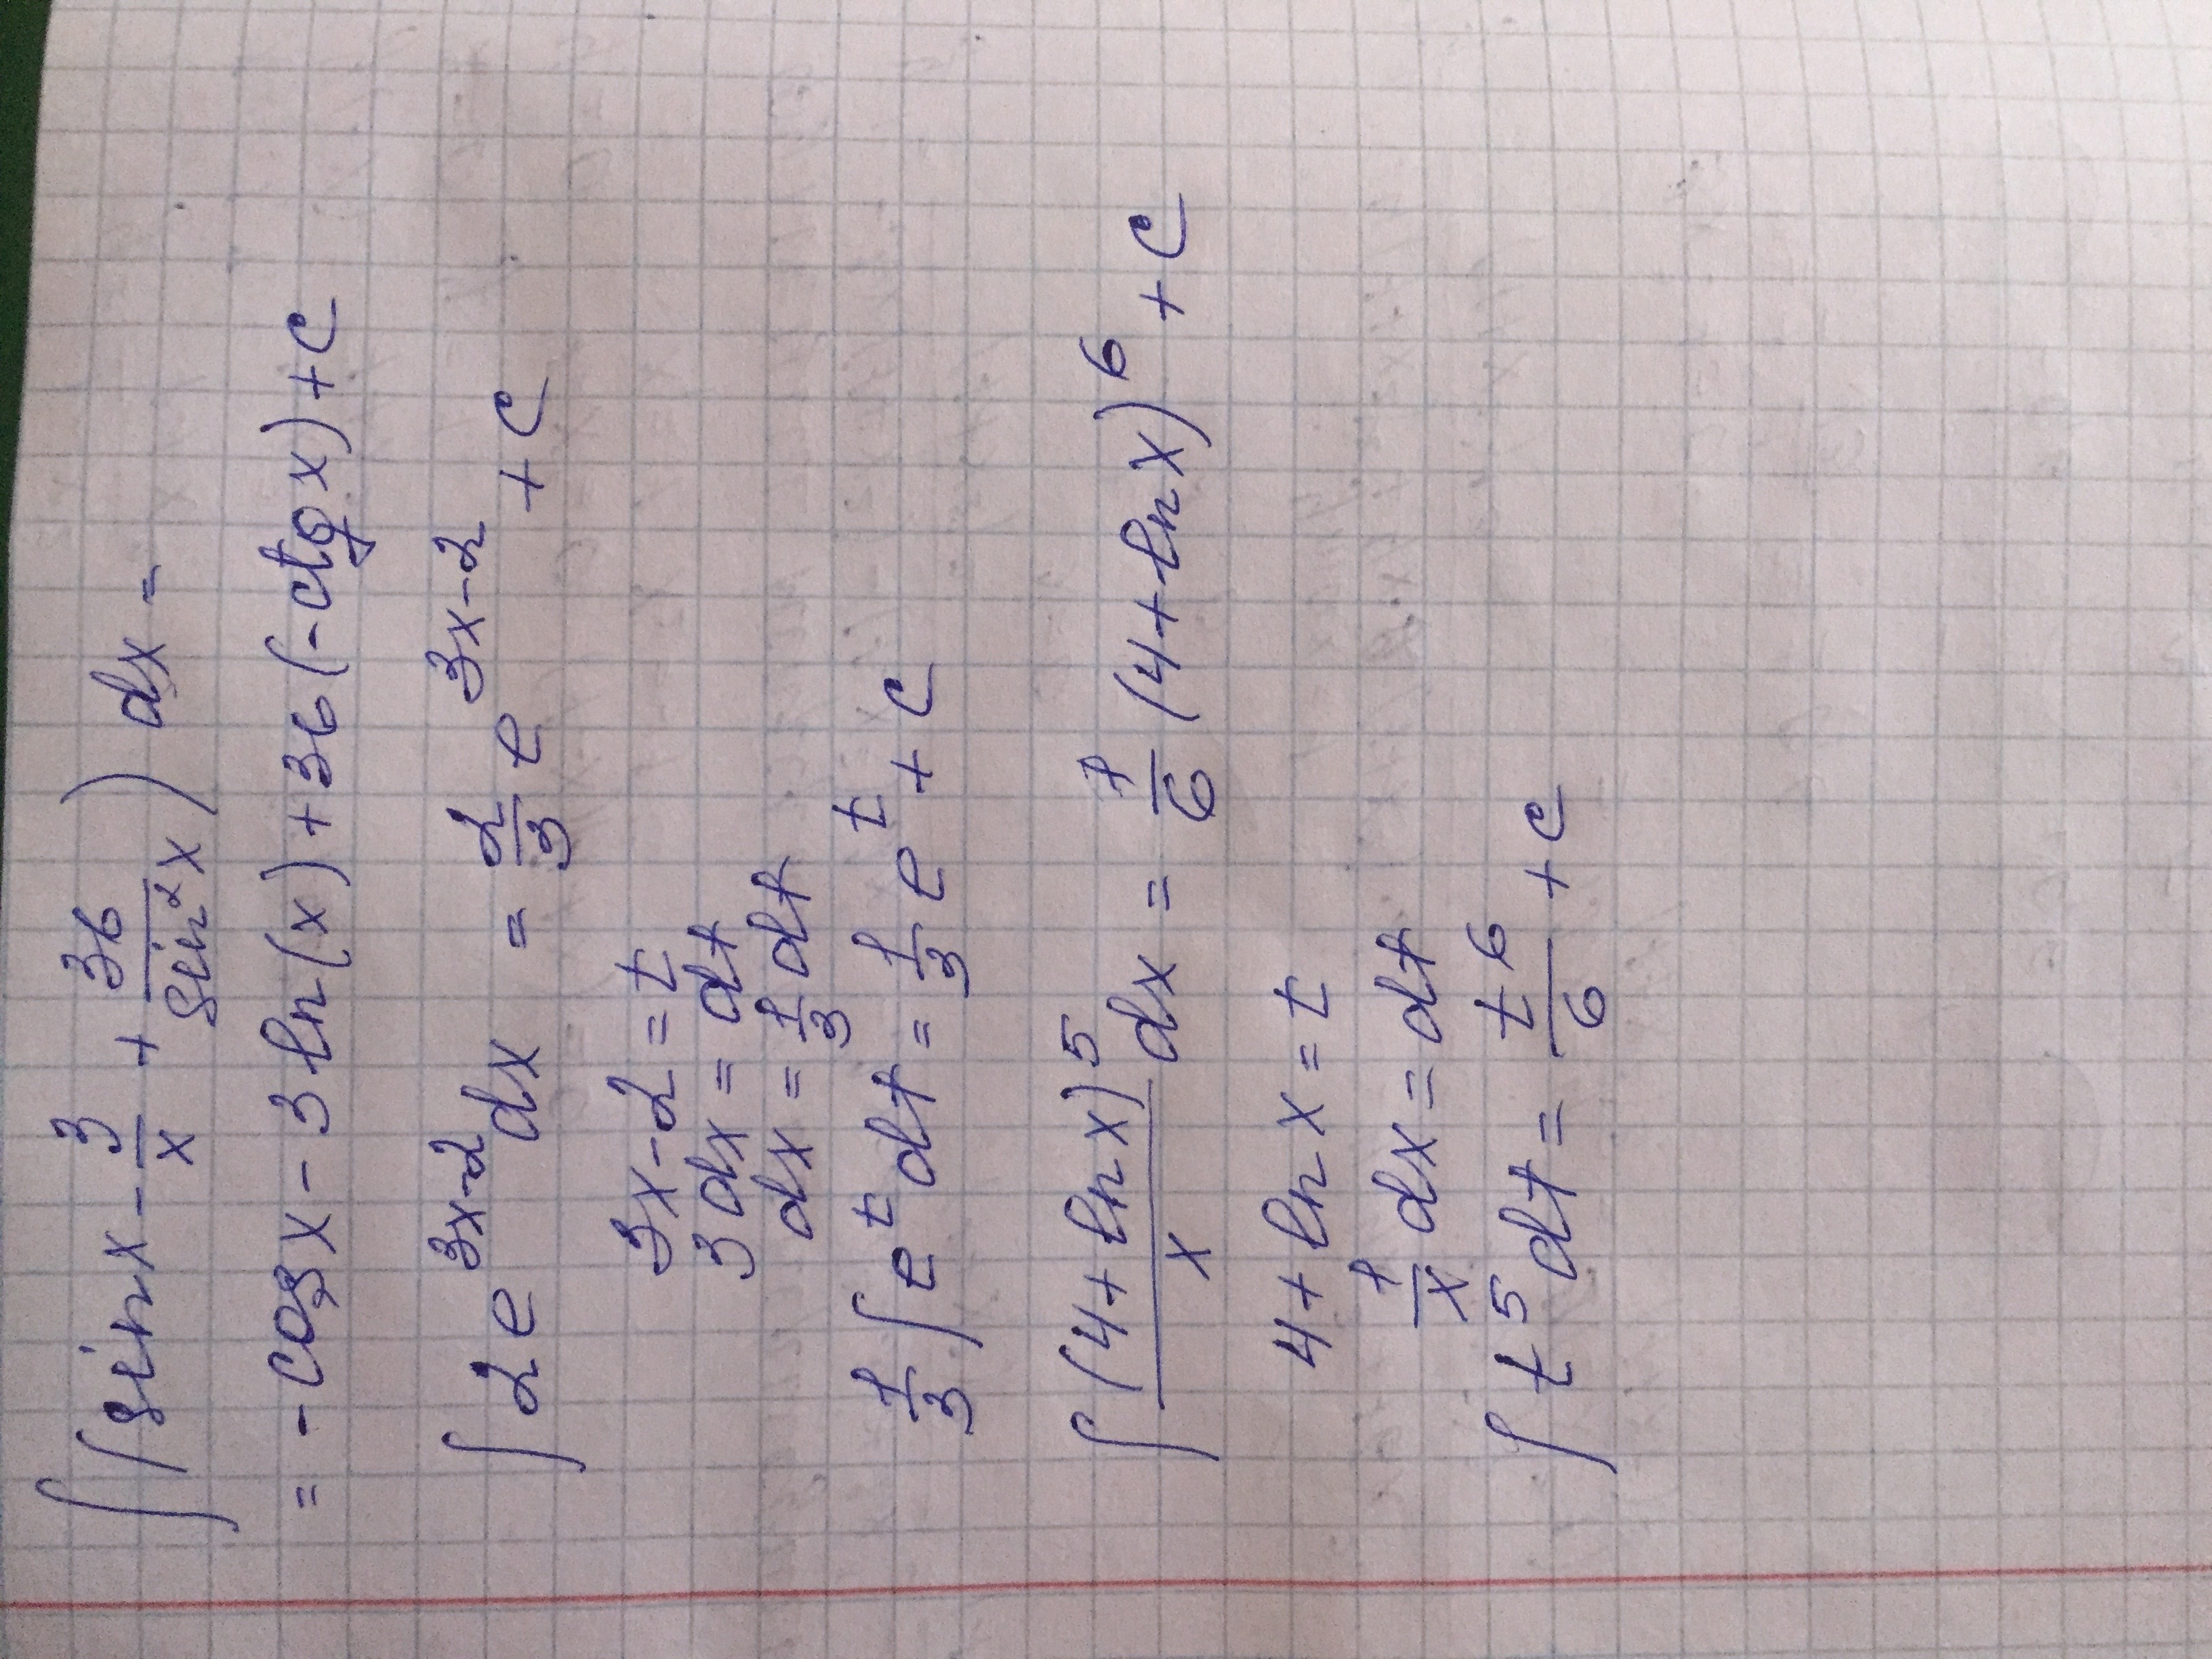 ∫(sinx - 3/x + 36/sin²x) dx =
= -cosx - 3 ln(x) + 36(-ctgx) + C
∫2e^(3x-2) dx = 2/3 e^(3x-2) + C
3x-2 = t
3dx = dt
dx = 1/3 dt
1/3 ∫e^t dt = 1/3 e^t + C
∫(4+lnx)^5/x dx = 1/6 (4+lnx)^6 + C
4+lnx = t
1/x dx = dt
∫t^5 dt = t^6/6 + C